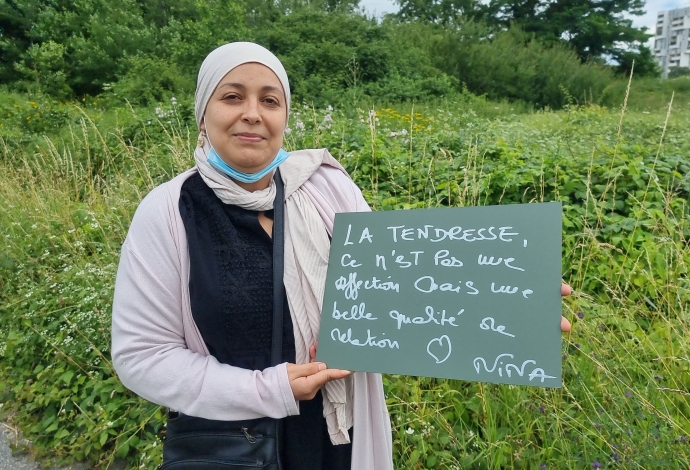 LA TENDRESSE,
Ce n'EST Pas une
affection Mais une
belle qualité de
relation ♡
NINA